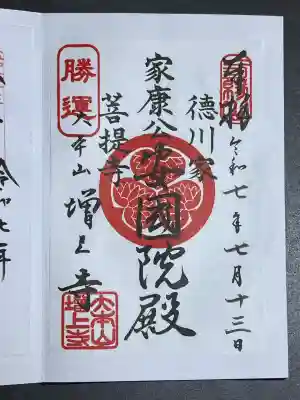 奉拝
令和七年七月十三日
徳川家
家康公安國院殿
菩提寺
勝運
大本山
増上寺
大本山
増上寺